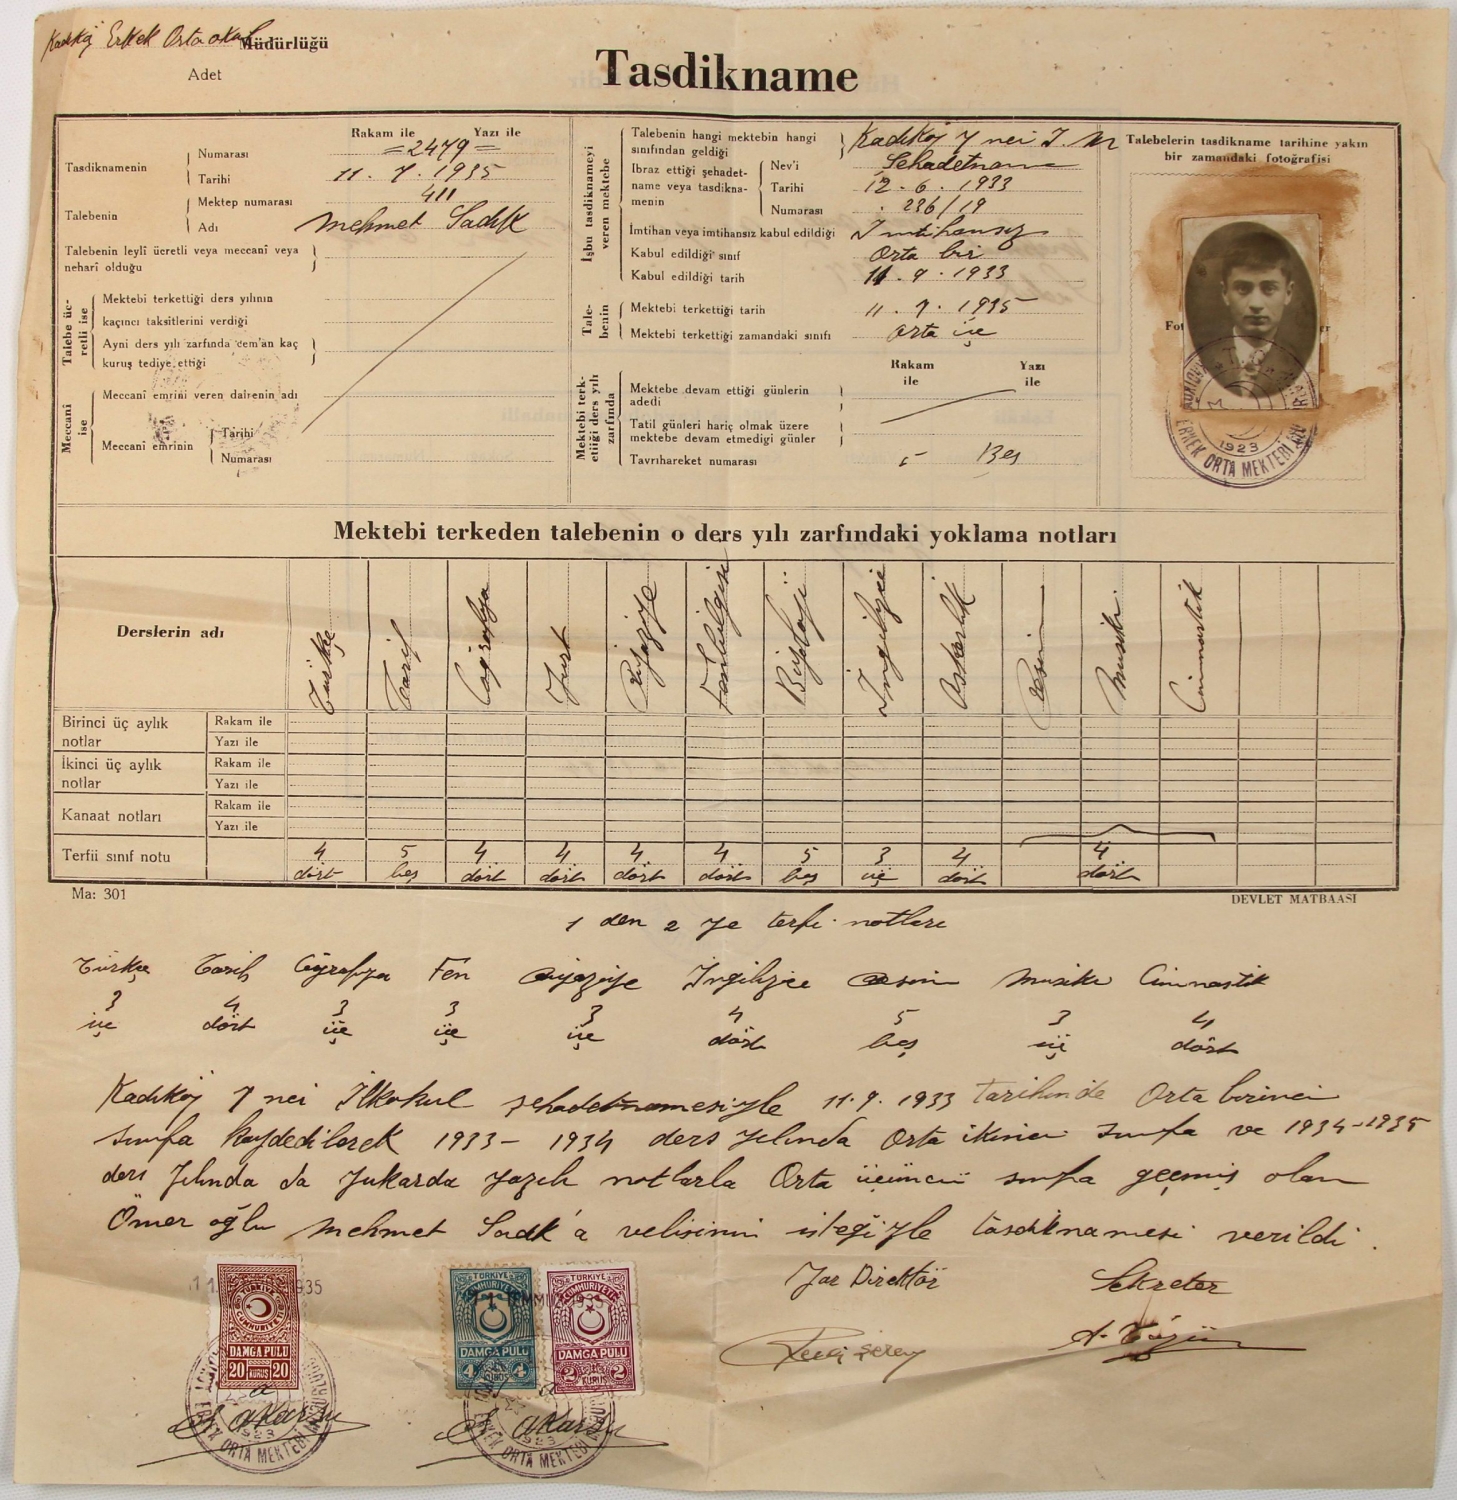 Kadıköy Erkek Orta okul Müdürlüğü
Adet
Tasdikname
Rakam ile Yazı ile
Tasdiknamenin
Numarası =2479=
Tarihi 11.7.1935
Talebenin
Mektep numarası 411
Adı Mehmet Sadık
Talebenin leylî ücretli veya meccanî veya
neharî olduğu
Talebe üc-
retli ise
Mektebi terkettiği ders yılının
kaçıncı taksitlerini verdiği
Ayni ders yılı zarfında cem'an kaç
kuruş tediye ettiği
Meccanî
ise
Meccanî emrini veren dairenin adı
Meccanî emrinin
Tarihi
Numarası
İşbu tasdiknameyi
veren mektebe
Talebenin hangi mektebin hangi
sınıfından geldiği
Kadıköy 7 nci İ. M
İbraz ettiği şehadet-
name veya tasdikna-
menin
Nev'i Şehadetname
Tarihi 12.6.1933
Numarası 236/19
İmtihan veya imtihansız kabul edildiği İmtihansız
Kabul edildiği sınıf Orta bir
Kabul edildiği tarih 11.9.1933
Tale-
benin
Mektebi terkettiği tarih 11.7.1935
Mektebi terkettiği zamandaki sınıfı Orta üç
Rakam
ile
Yazı
ile
Mektebi terk-
ettiği ders yılı
zarfında
Mektebe devam ettiği günlerin
adedi
Tatil günleri hariç olmak üzere
mektebe devam etmedigi günler
Tavrıhareket numarası 5 Beş
Talebelerin tasdikname tarihine yakın
bir zamandaki fotoğrafisi
Fot
T.C.
ERKEK ORTA MEKTEBİ
1923
Mektebi terkeden talebenin o ders yılı zarfındaki yoklama notları
Derslerin adı Türkçe Tarih Coğrafya Yurt Riyaziye Fen bilgisi Biyoloji İngilizce Askerlik Resim Musiki Cimnastik
Birinci üç aylık
notlar
Rakam ile
Yazı ile
İkinci üç aylık
notlar
Rakam ile
Yazı ile
Kanaat notları
Rakam ile
Yazı ile
Terfii sınıf notu 4 5 4 4 4 4 5 3 4 4
dört beş dört dört dört dört beş üç dört dört
Ma: 301
DEVLET MATBAASI
1 den 2 ye terfi notları
Türkçe Tarih Coğrafya Fen Riyaziye İngilizce Resim Musiki Cimnastik
3 4 3 3 3 4 5 3 4
üç dört üç üç üç dört beş üç dört
Kadıköy 7 nci İlkokul şehadetnamesiyle 11.9.1933 tarihinde Orta birinci
sınıfa kaydedilerek 1933-1934 ders yılında Orta ikinci sınıfa ve 1934-1935
ders yılında da yukarda yazılı notlarla Orta üçüncü sınıfa geçmiş olan
Ömer oğlu Mehmet Sadık'a velisinin isteğiyle tasdiknamesi verildi.
Yar Direktör
Sekreter
TÜRKİYE
CUMHURİYETİ
DAMGA PULU
20 KURUŞ 20
TÜRKİYE
CUMHURİYETİ
DAMGA PULU
4 KURUŞ 4
TÜRKİYE
CUMHURİYETİ
DAMGA PULU
2 KURUŞ 2
S. Akarsu
S. Akarsu
1923
ERKEK ORTA MEKTEBİ
1923
ERKEK ORTA MEKTEBİ